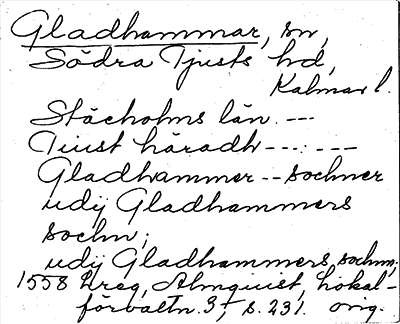 Gladhammar, sn,
Södra Tjusts hd,
Kalmar l.
Stächolms län. ---
Tiust häradh --- ---
Gladhammer -- sochner
udij Gladhammers
sochn;
udij Gladhammers, sochnn,
1558 Ureg, Almquist, Lokal-
förvaltn. 3, s. 231. orig.